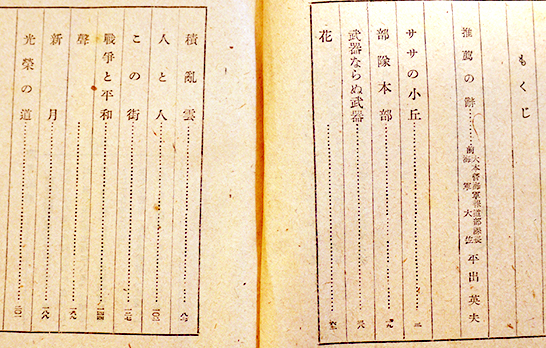 もくじ
推薦の跡………前大本營海軍報道部課長 海軍大佐 平出英夫
ササの小丘………
部隊本部………
武器ならぬ武器………
花………
積亂雲………
人と人………一〇三
この街………
戰爭と平和………一四四
聲………
新月………
光榮の道………